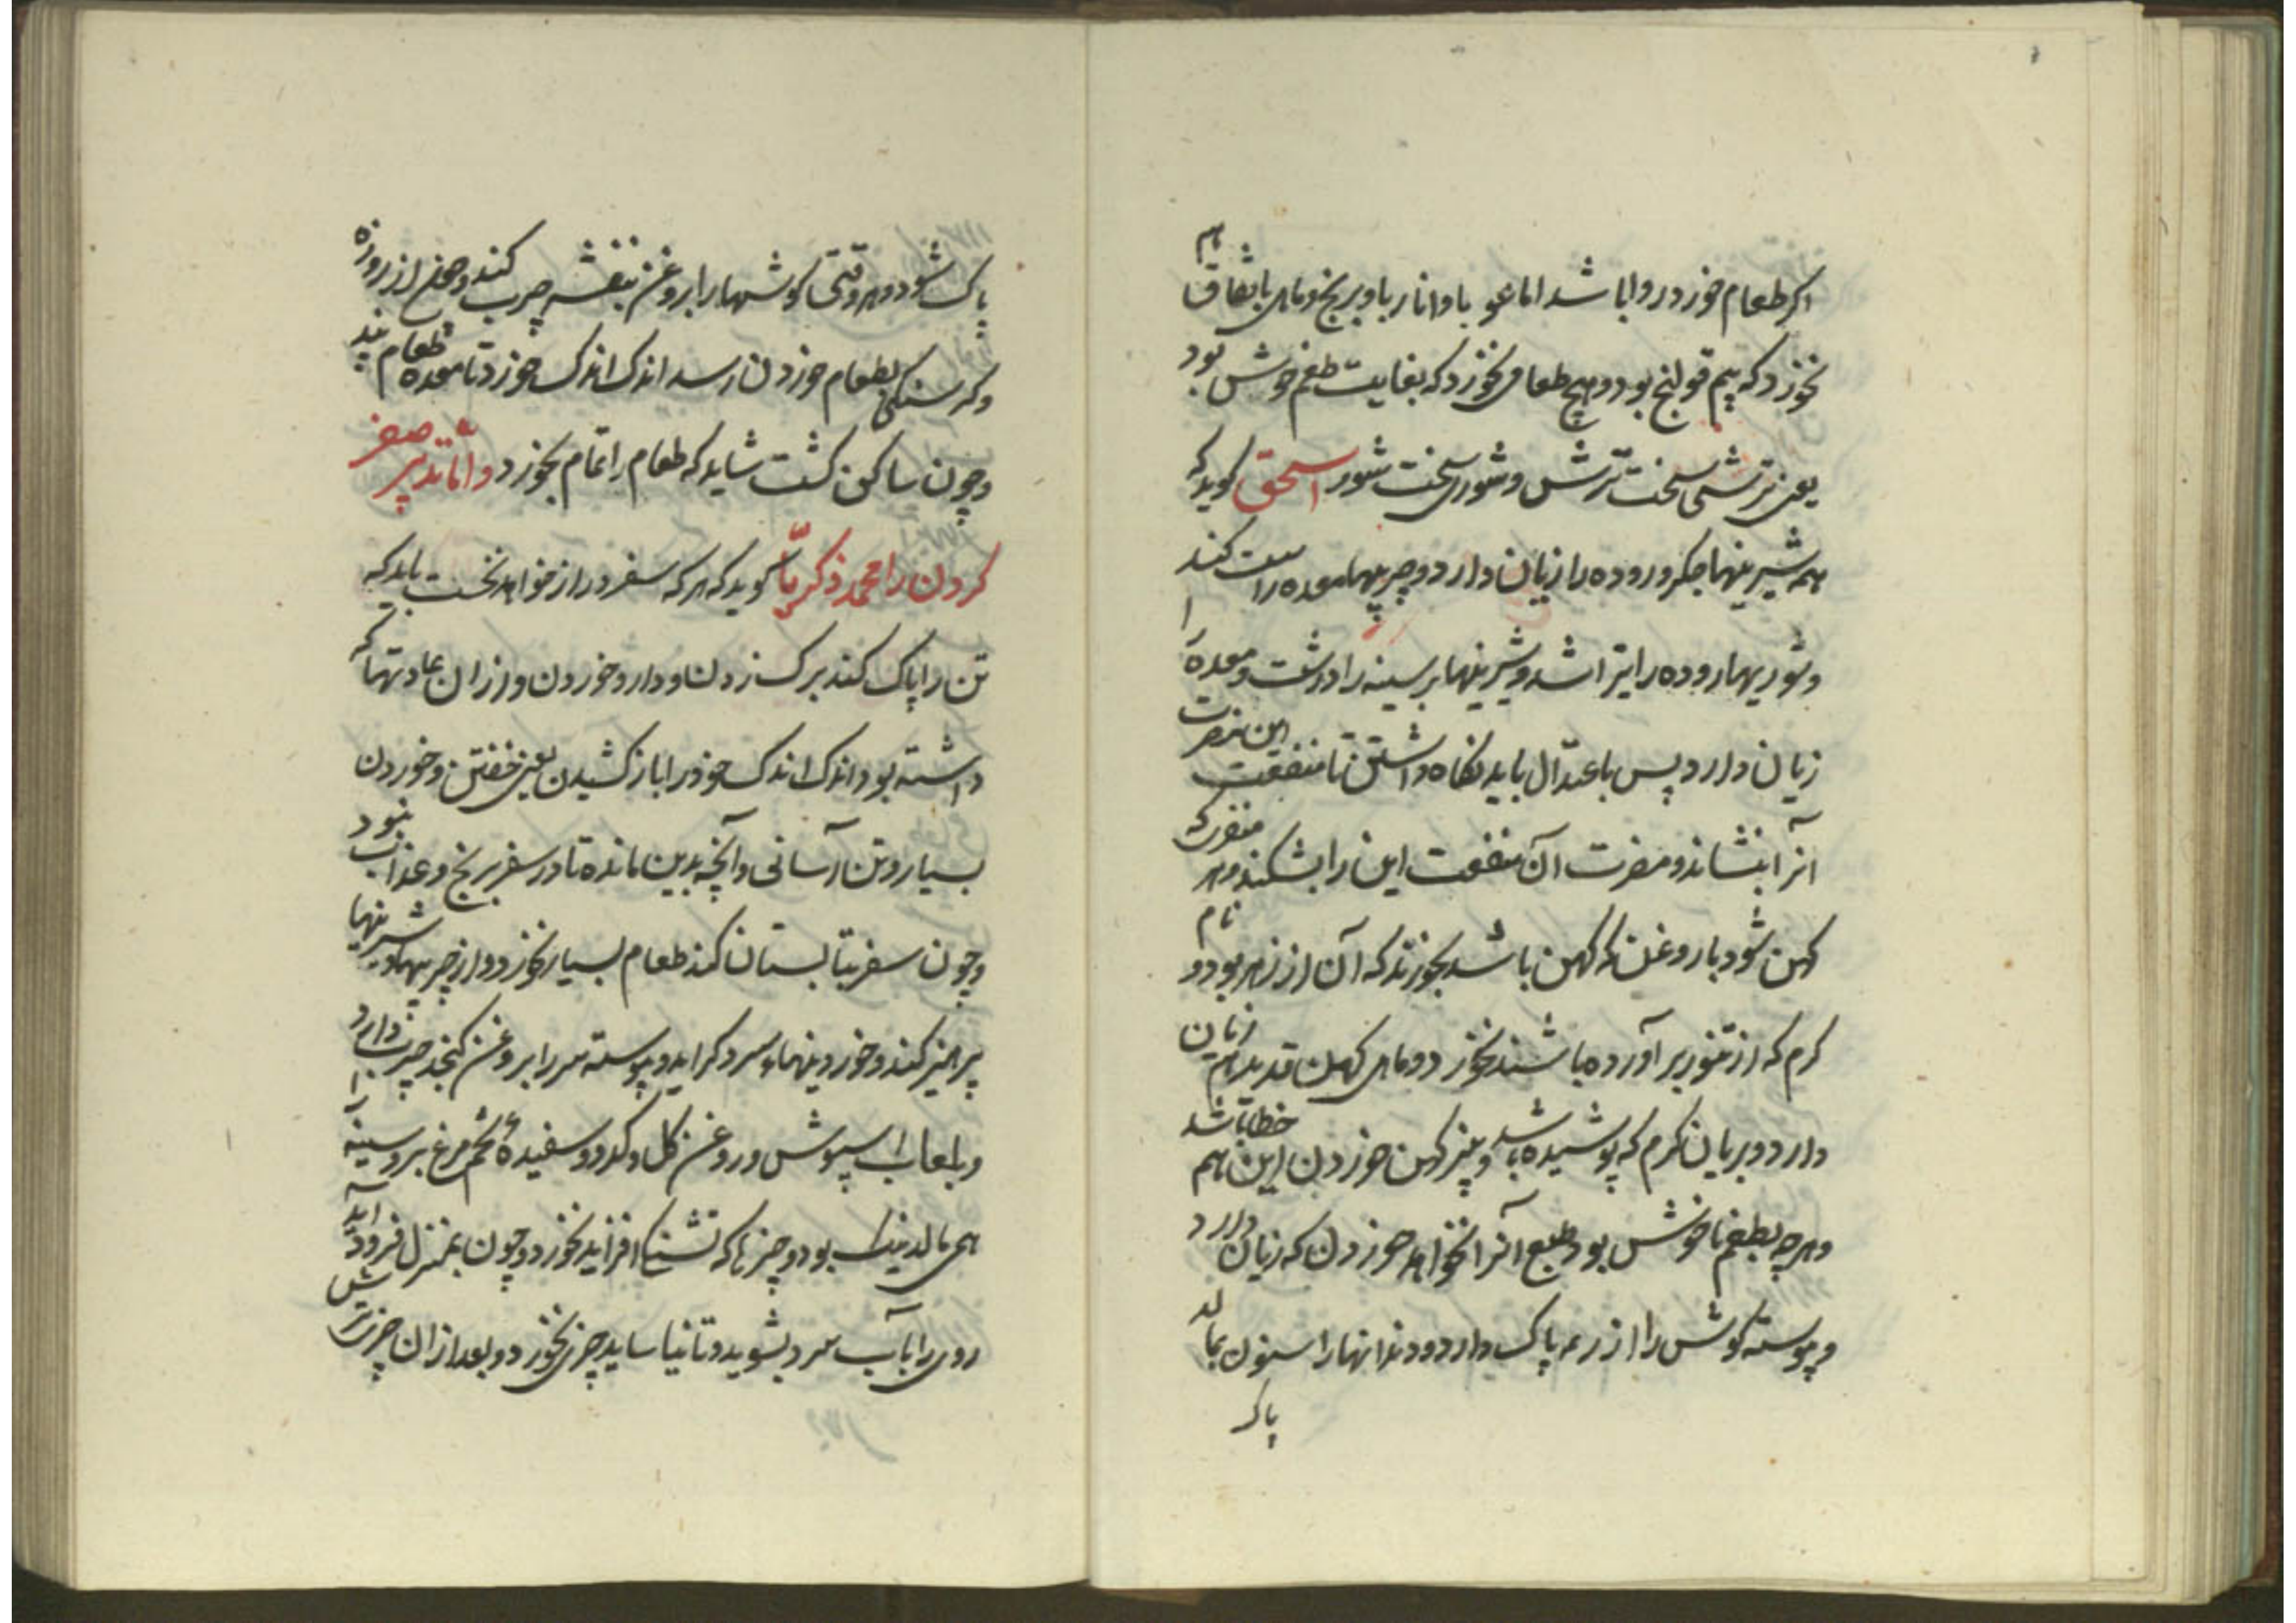 اکر طعام خورد روا باشد اما غو باوانار باو برنج و ماهی باتفاق هم
نخورد که بیم قولنج بود و هیچ طعامی نخورد که بغایت طعم خوش بود
یعنی ترشی سخت ترش و شوری سخت شور اسحق کوید که
همه شیرینیها جکر و روده را زیان دارد و چربیها معده را سست کند
و شوریها روده را بتراشد و شیرینیها بر سینه را درشت و معده را
زیان دارد پس باعتدال باید نکاه داشتن تا منفعت این مضرت
آنرا بنشاند و مضرت آن منفعت این را بشکند و هر مغزی که
کهن شود با روغن که کهن باشد بخورند که آن از زهر بود و نام
کرم که از تنور بر آورده باشند نخورد و ماهی کهن قدید هم زیان
دارد و بریان کرم که پوشیده باشد و پنیر کهن خوردن این هم خطا باشد
و هرچه بطعم ناخوش بود و طبع آنرا نخواهد خوردن که زیان دارد
و پیوسته کوش را از ریم پاک دارد و دندانها را سنون بمالد
پاک
پاک شود و هر وقتی کوشها را بروغن بنفشه چرب کند و از روزه
و کرسنکی بطعام خوردن رسد اندک اندک خورد تا معده طعام
و چون ساکن کشت شاید که طعام را تمام بخورد و اما تدبیر سفر
کردن را محمد زکریا کوید که هر که سفر دراز خواهد نخست باید که
تن را پاک کند برک زدن و دارو خوردن و از آن عادتها که
داشته بود اندک اندک خود را باز کشیدن یعنی خفتن و خوردن
بسیار و تن آسانی و آنچه بدین ماند تا در سفر برنج و عذاب نبود
و چون سفر بتابستان کند طعام بسیار نخورد و از چربیها و شیرینیها
پرهیز کند و خوردنیها سرد کراید و پیوسته سر را بروغن کنجد چرب دارد
و بلعاب اسپوش و روغن کل و کدو و سفیده تخم مرغ بر و سینه را
همی مالد نیک بود و چیزها که تشنکی افزاید نخورد و چون بمنزل فرود آید
روی را بآب سرد بشوید و تا نیاساید چیزی نخورد و بعد از آن چیز ترش